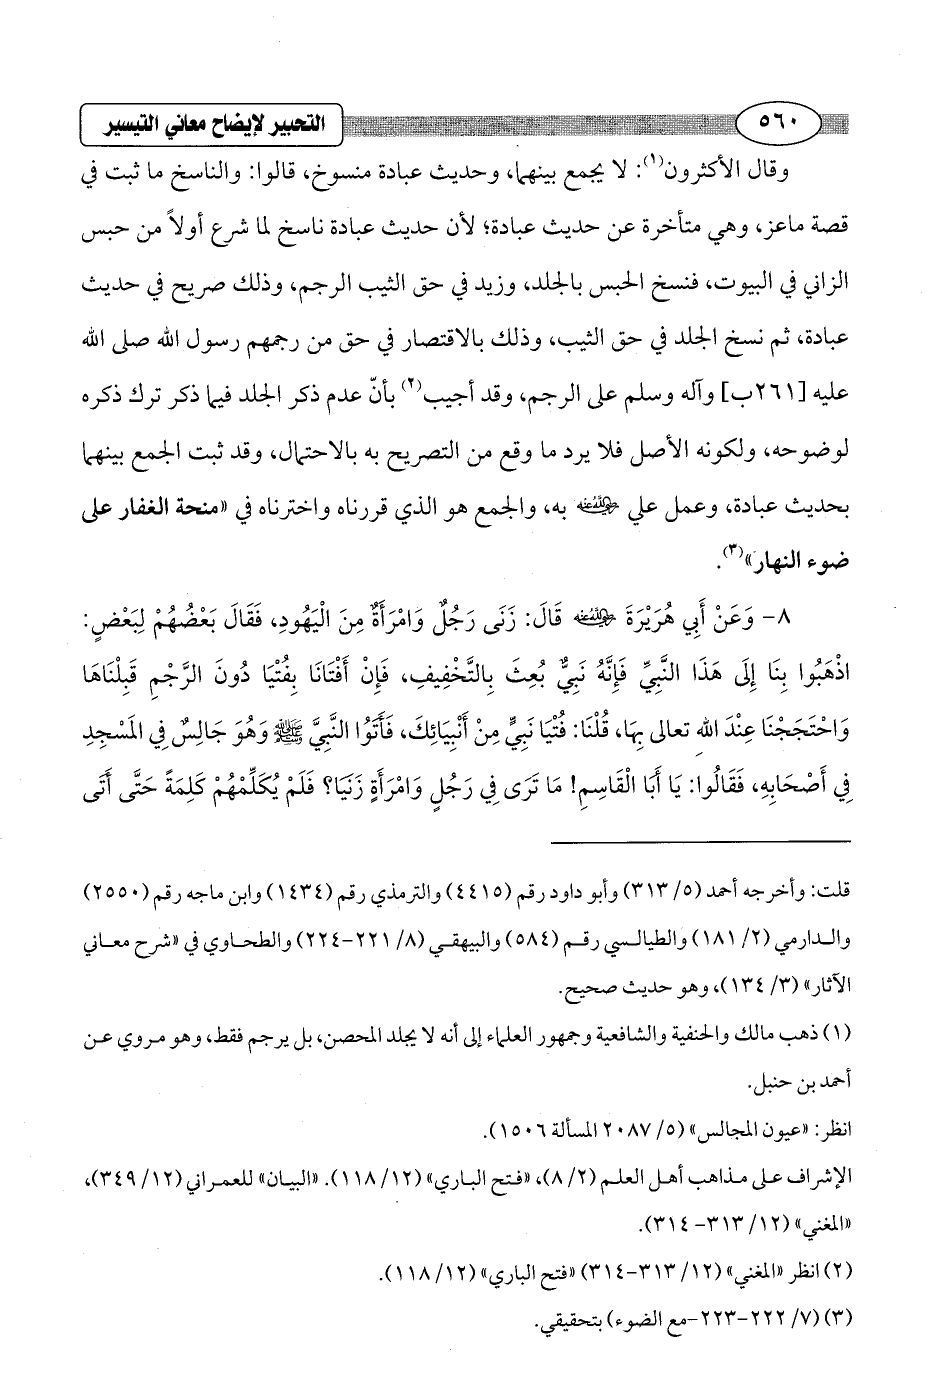 ٥٦٠ التحبير لإيضاح معاني التيسير
وقال الأكثرون(١): لا يجمع بينهما، وحديث عبادة منسوخ، قالوا: والناسخ ما ثبت في
قصة ماعز، وهي متأخرة عن حديث عبادة؛ لأن حديث عبادة ناسخ لما شرع أولاً من حبس
الزاني في البيوت، فنسخ الحبس بالجلد، وزيد في حق الثيب الرجم، وذلك صريح في حديث
عبادة، ثم نسخ الجلد في حق الثيب، وذلك بالاقتصار في حق من رجمهم رسول الله صلى الله
عليه [٢٦١ب] وآله وسلم على الرجم، وقد أجيب(٢) بأنّ عدم ذكر الجلد فيما ذكر ترك ذكره
لوضوحه، ولكونه الأصل فلا يرد ما وقع من التصريح به بالاحتمال، وقد ثبت الجمع بينهما
بحديث عبادة، وعمل علي رضي الله عنه به، والجمع هو الذي قررناه واخترناه في «منحة الغفار على
ضوء النهار»(٣).
٨- وَعَنْ أَبِي هُرَيْرَةَ رضي الله عنه قَالَ: زَنَى رَجُلٌ وَامْرَأَةٌ مِنَ الْيَهُودِ، فَقَالَ بَعْضُهُمْ لِبَعْضٍ:
اذْهَبُوا بِنَا إِلَى هَذَا النَّبِيِّ فَإِنَّهُ نَبِيٌّ بُعِثَ بِالتَّخْفِيفِ، فَإِنْ أَفْتَانَا بِفُتْيَا دُونَ الرَّجْمِ قَبِلْنَاهَا
وَاحْتَجَجْنَا عِنْدَ الله تعالى بِهَا، قُلْنَا: فُتْيَا نَبِيٍّ مِنْ أَنْبِيَائِكَ، فَأَتَوُا النَّبِيَّ ﷺ وَهُوَ جَالِسٌ فِي المَسْجِدِ
فِي أَصْحَابِهِ، فَقَالُوا: يَا أَبَا الْقَاسِمِ! مَا تَرَى فِي رَجُلٍ وَامْرَأَةٍ زَنَيَا؟ فَلَمْ يُكَلِّمْهُمْ كَلِمَةً حَتَّى أَتَى
قلت: وأخرجه أحمد (٥/ ٣١٣) وأبو داود رقم (٤٤١٥) والترمذي رقم (١٤٣٤) وابن ماجه رقم (٢٥٥٠)
والدارمي (٢/ ١٨١) والطيالسي رقم (٥٨٤) والبيهقي (٨/ ٢٢١-٢٢٤) والطحاوي في «شرح معاني
الآثار» (٣/ ١٣٤)، وهو حديث صحيح.
(١) ذهب مالك والحنفية والشافعية وجمهور العلماء إلى أنه لا يجلد المحصن، بل يرجم فقط، وهو مروي عن
أحمد بن حنبل.
انظر: «عيون المجالس» (٥/ ٢٠٨٧ المسألة ١٥٠٦).
الإشراف على مذاهب أهل العلم (٢/ ٨)، «فتح الباري» (١٢/ ١١٨). «البيان» للعمراني (١٢/ ٣٤٩)،
«المغني» (١٢/ ٣١٣- ٣١٤).
(٢) انظر «المغني» (١٢/ ٣١٣-٣١٤) «فتح الباري» (١٢/ ١١٨).
(٣) (٧/ ٢٢٢-٢٢٣-مع الضوء) بتحقيقي.